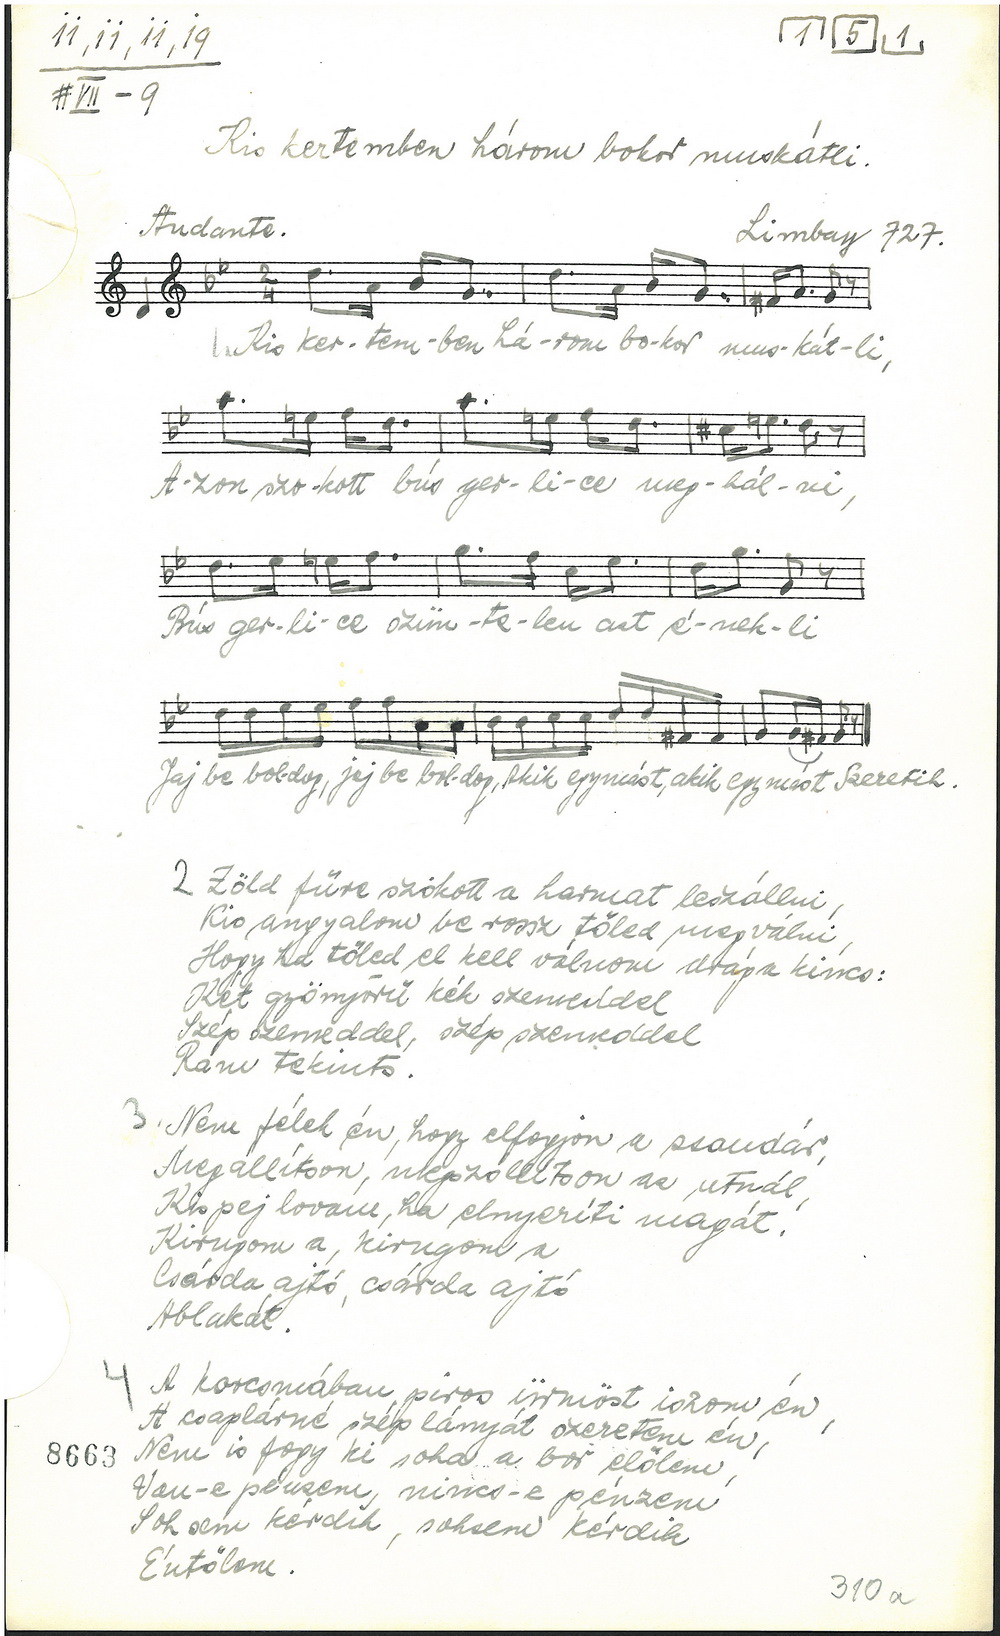 11, 11, 11, 19
1 5 1
#VII - 9
Kis kertemben három bokor muskátli.
Andante.
Limbay 727.
1. Kis ker-tem-ben há-rom bo-kor mus-kát-li,
A-zon szo-kott bús ger-li-ce meg-hál-ni,
Bús ger-li-ce szün-te-len azt é-nek-li
Jaj be bol-dog, jaj be bol-dog, Akik egymást, akik egymást Szeretik.
2 Zöld fűre szokott a harmat leszállni,
Kis angyalom be rossz tőled megválni,
Hogy ha tőled el kell válnom drága kincs:
Két gyönyörű kék szemeddel
Szép szemeddel, szép szemeddel
Rám tekints.
3. Nem félek én, hogy elfogjon a zsandár,
Megállítson, megszóllítson az utnál,
Kis pej lovam, ha elnyeríti magát!
Kirugom a, kirugom a
Csárda ajtó, csárda ajtó
Ablakát.
4 A korcsmában piros ürmöst iszom én,
A csaplárné szép lányát szeretem én,
Nem is fogy ki soha a bor előlem,
Van-e pénzem, nincs-e pénzem
Soh sem kérdik, sohsem kérdik
Éntőlem.
8663
310 a